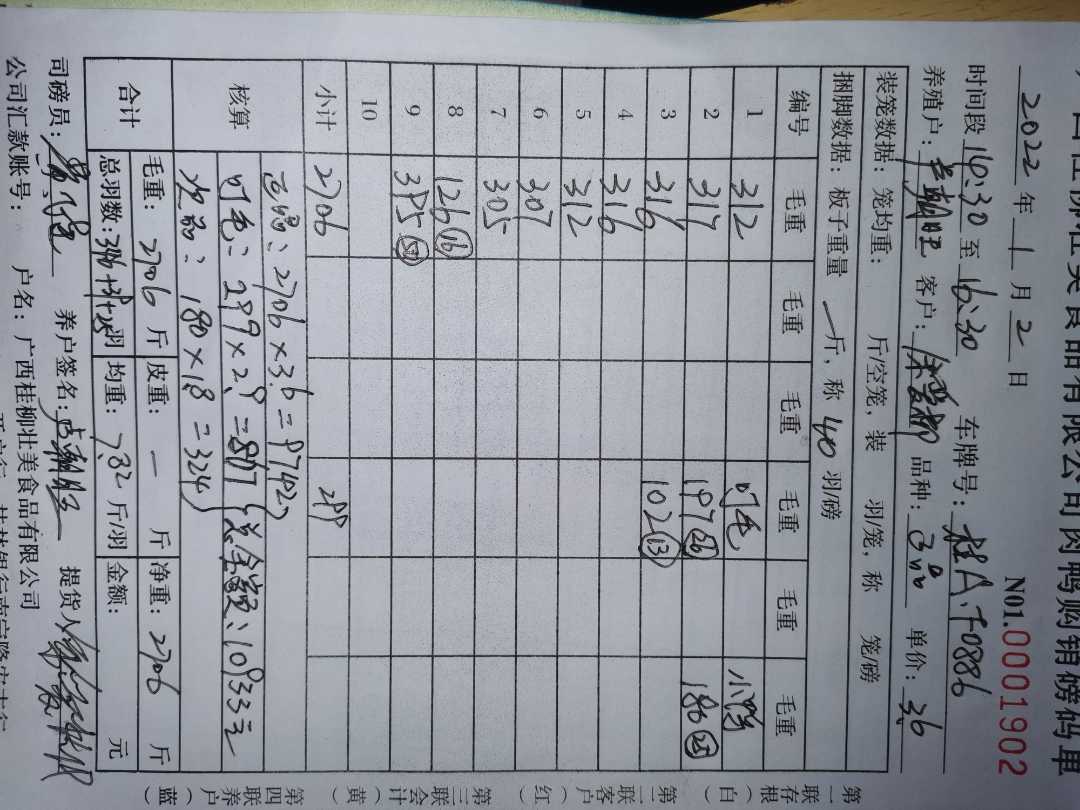 美食品有限公司肉鸭购销磅码单
N01.00001902
2022 年 1 月 2 日
时间段 14:30 至 16:30 车牌号: 桂A·F0886
养殖户: 客户: 品种: 单价: 3.6
装笼数据: 笼均重: 斤/空笼, 装 羽/笼, 称 笼/磅
捆脚数据: 板子重量 一 斤, 称 40 羽/磅
编号 毛重 毛重 毛重 毛重 毛重 毛重
1 312 可毛 小鸭
2 317 197 26 180 25
3 316 102 13
4 316
5 312
6 307
7 305
8 126 16
9 395 50
10
小计 2706 299
核算 正品: 2706×3.6=9742
可毛: 299×2.9=867 总金额: 10933元
次品: 180×1.8=324
合计 毛重: 2706 斤 皮重: 一 斤 净重: 2706 斤
总羽数: 346+39+25 羽 均重: 7.82 斤/羽 金额: 元
司磅员: 养户签名: 提货人
公司汇款账号: 户名: 广西桂柳壮美食品有限公司
第一联存根(白)
第二联客户(红)
第三联会计(黄)
第四联养户(蓝)